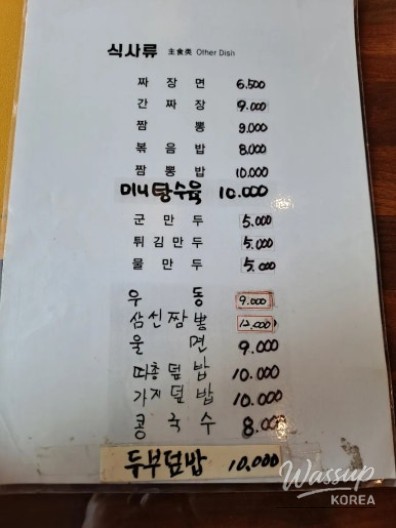 식사류 主食类 Other Dish
짜장면 6.500
간짜장 9.000
짬뽕 9.000
볶음밥 8.000
짬뽕밥 10.000
미니탕수육 10.000
군만두 5.000
튀김만두 5.000
물만두 5.000
우동 9.000
삼선짬뽕 12,000
울면 9.000
따총덮밥 10.000
가지덮밥 10.000
콩국수 8.000
두부덮밥 10,000
Wassup
KOREA